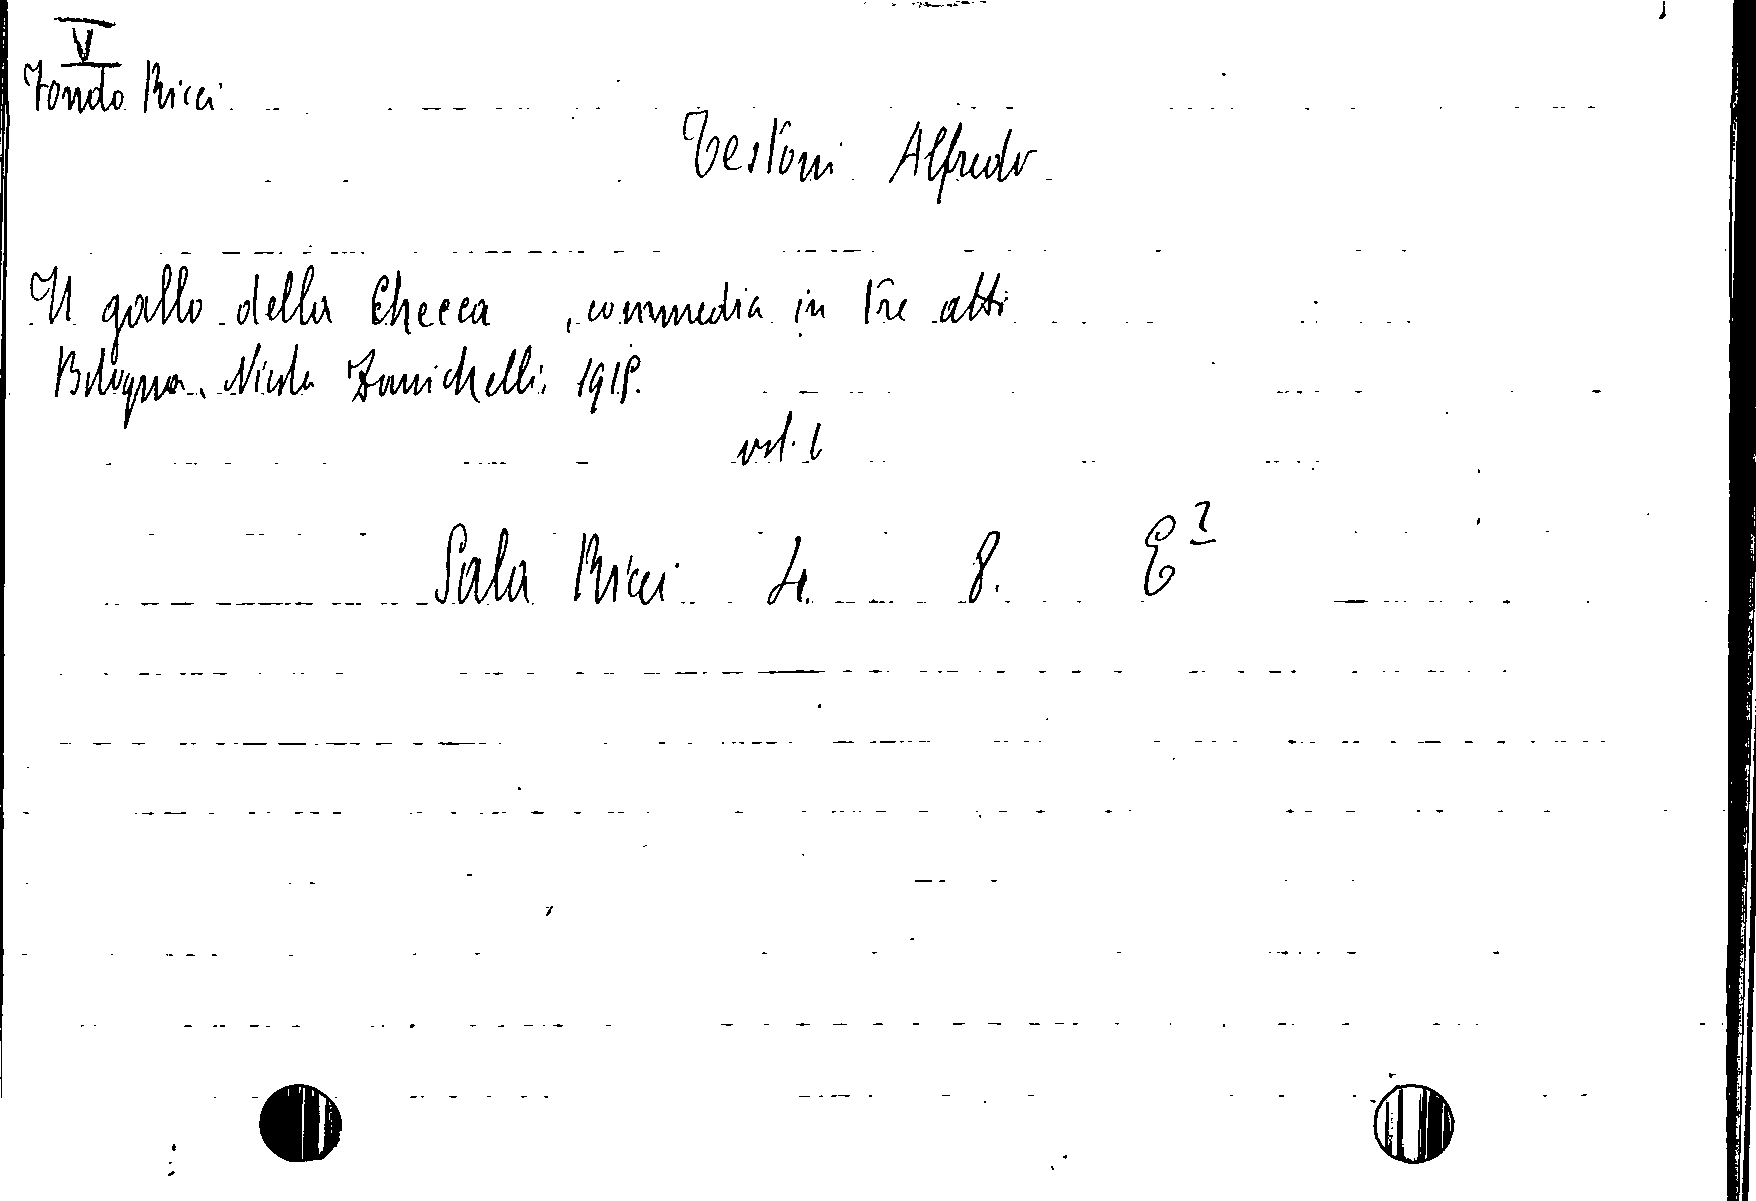 V
Fondo Ricci
Testoni Alfredo
Il gallo della Checca, commedia in tre atti
Bologna. Nicola Zanichelli. 1918.
vol. 1
Sala Ricci 4. 8. E²